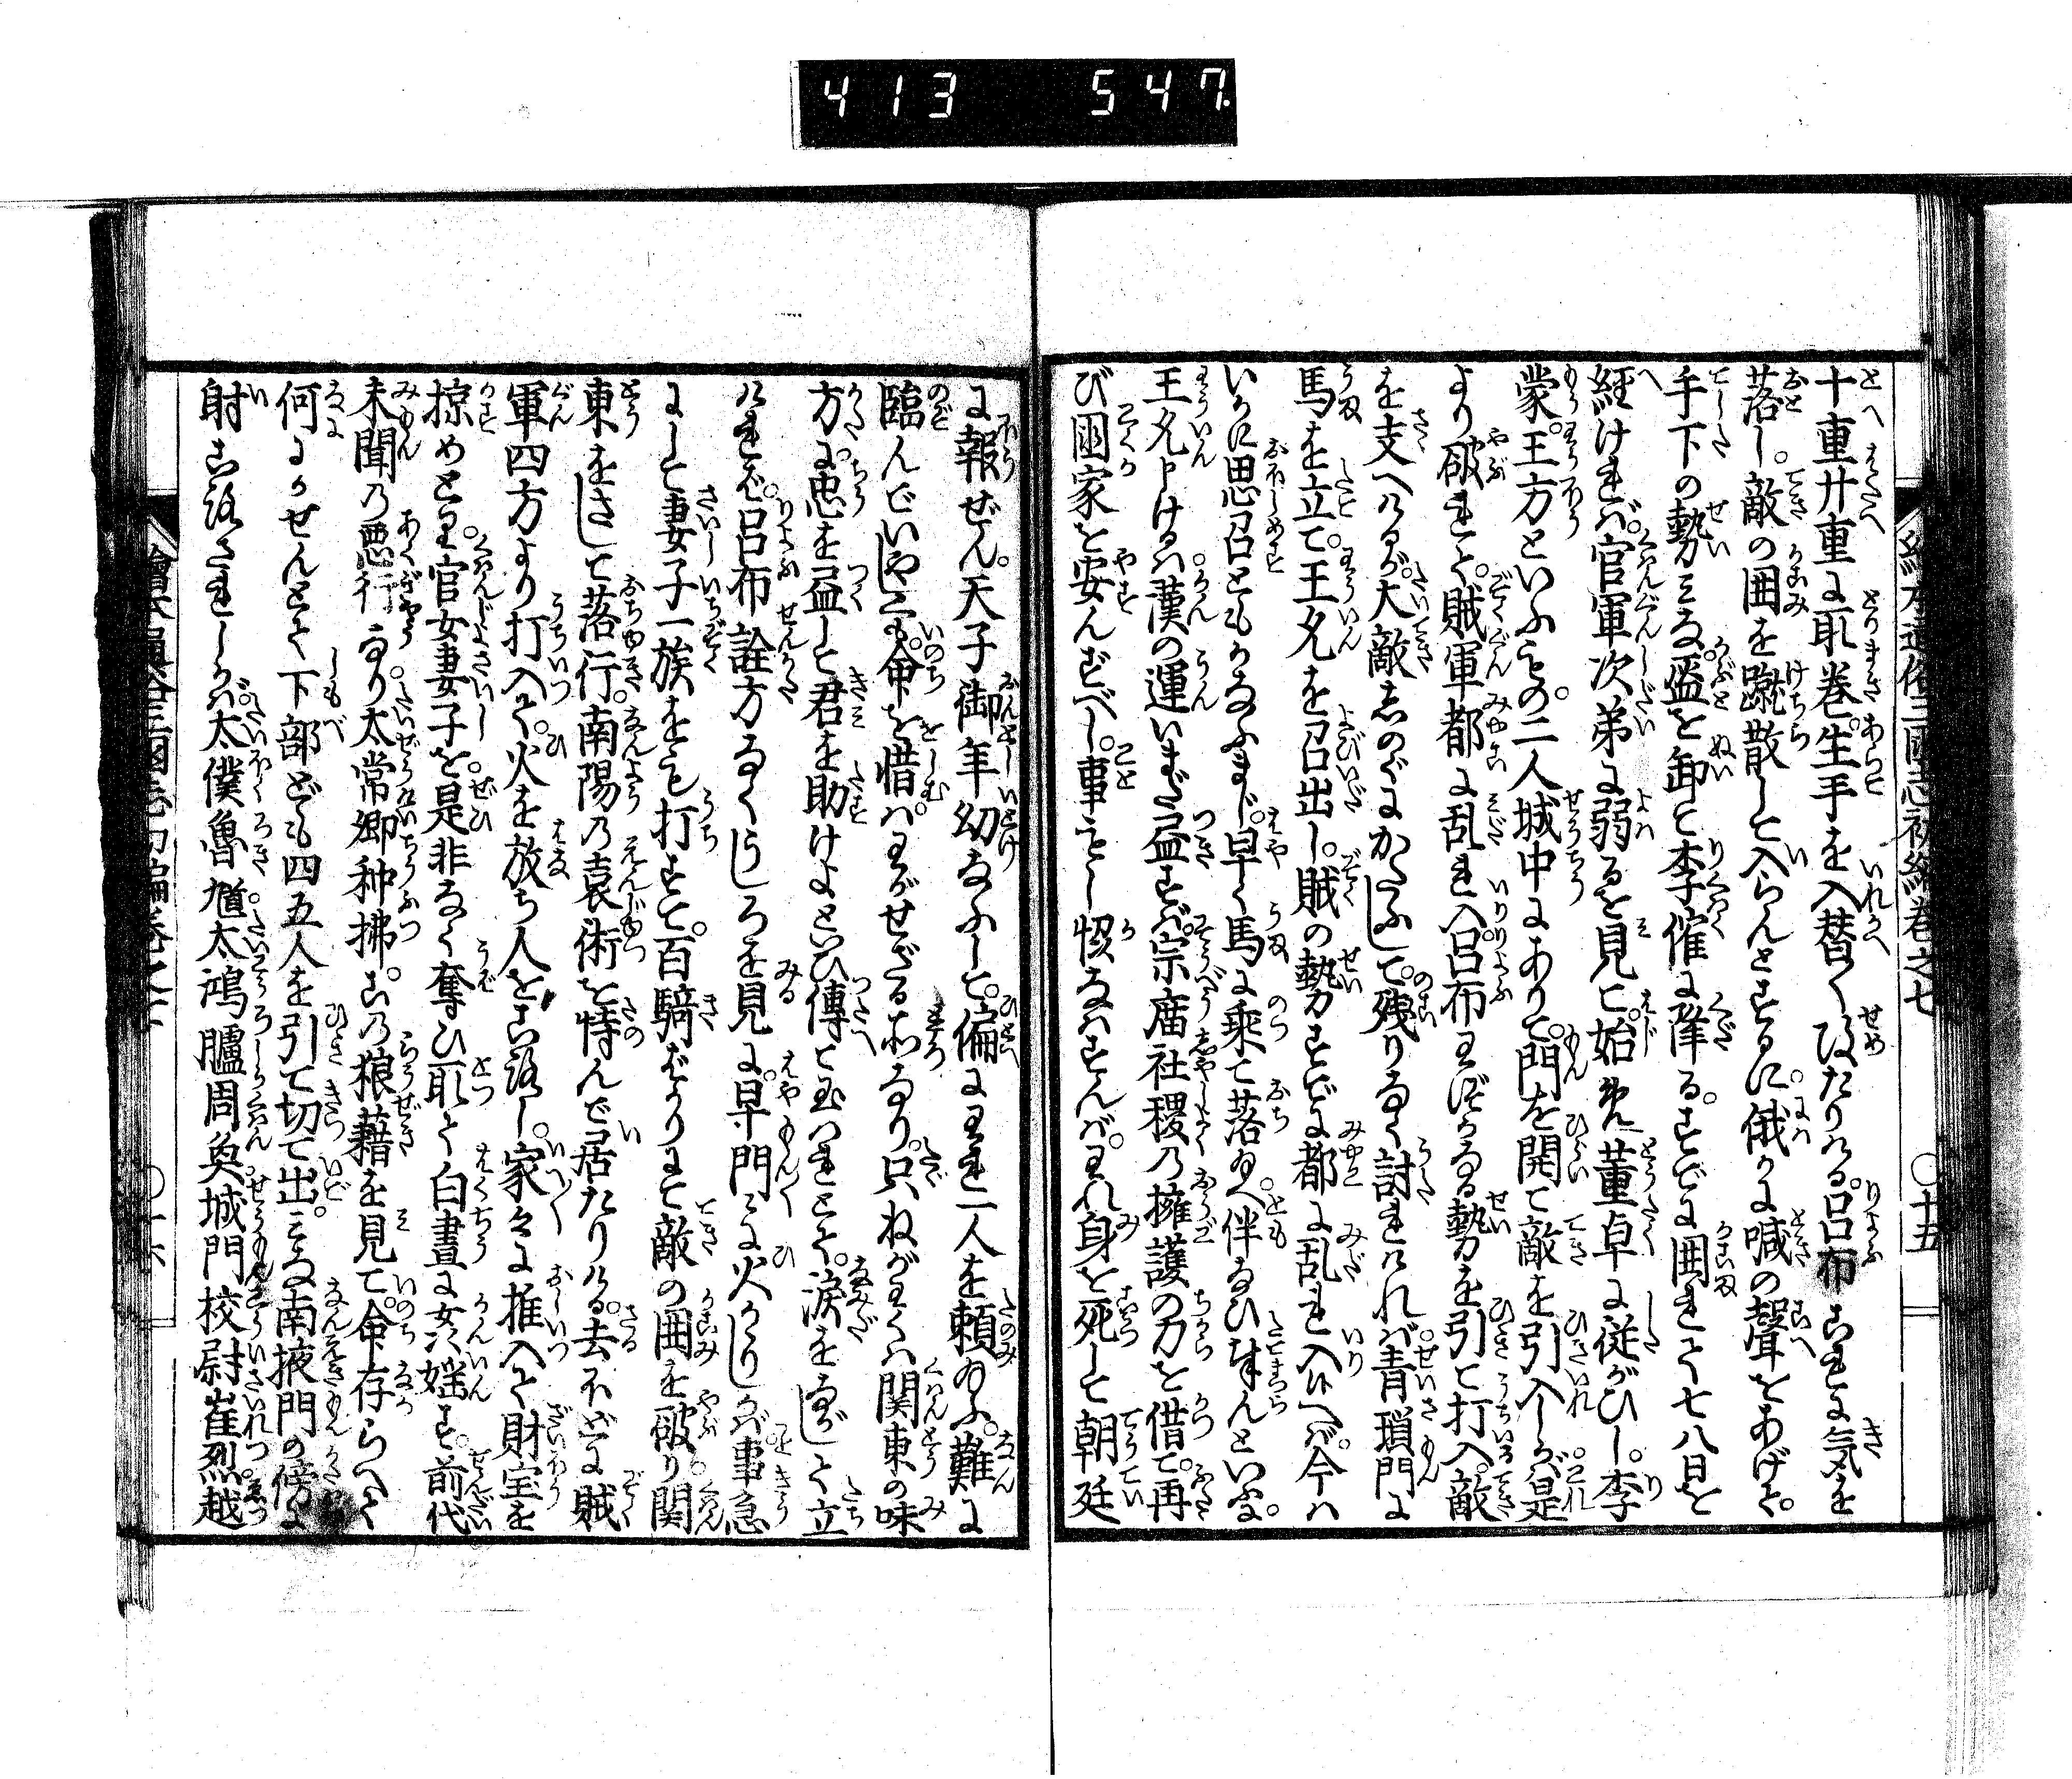 413 547
繪本通俗三國志初編卷之七 〇十五
十重廿重に取巻。生手を入替〱攻たりける。呂布これに気を
落し。敵の囲を蹴散して入らんとするに。俄かに喊の聲をあげて。
手下の勢みな。盔を卸て李傕に降る。すでに囲れて七八日を
経ければ。官軍次第に弱るを見て。始め董卓に従がひし。李
蒙。王方といふもの。二人城中にありて。門を開て敵を引入しかば。是
より破れて。賊軍都に乱れ入。呂布わづかなる勢を引て打入。敵
を支へけるが。大敵しのぐにかたふして。残りなく討れければ。青瑣門に
馬を立て。王允を召出し。賊の勢すでに都に乱れ入候へば。今は
いかに思召ともかなふまじ。早く馬に乗て落給へ。伴なひ奉んといふ。
王允申けるは。漢の運いまだ盡ずば。宗廟社稷の擁護の力を借て。再
び國家を安んずべし。事もし恊なはずんば。われ身を死して朝廷
に報ぜん。天子御年幼なふして。偏にわれ一人を頼み給ふ。難に
臨んでいやしくも。命を惜むは。わがせざる所なり。只ねがわくは関東の味
方に。忠を盡して君を助けよといひ傳へ玉はれとて。涙をながして立
ければ。呂布詮方なくうしろを見るに。早門々に火かゝりしかば。事急
にして妻子一族をも打すて。百騎ばかりにて敵の囲を破り。関
東をさして落行。南陽の袁術を恃んで居たりける。去ほどに賊
軍四方より打入て。火を放ち人をころし。家々に推入て財宝を
掠めとり。官女妻子を。是非なく奪ひ取て白晝に女は婬す。前代
未聞の悪行なり。太常卿种拂。この狼藉を見て。命存らへて
何にかせんとて下部ども四五人を引て切て出。みな南掖門の傍に
射ころされしかば。太僕魯馗。太鴻臚周奐。城門校尉崔烈。越
繪本通俗三國志初編卷之七 〇十六